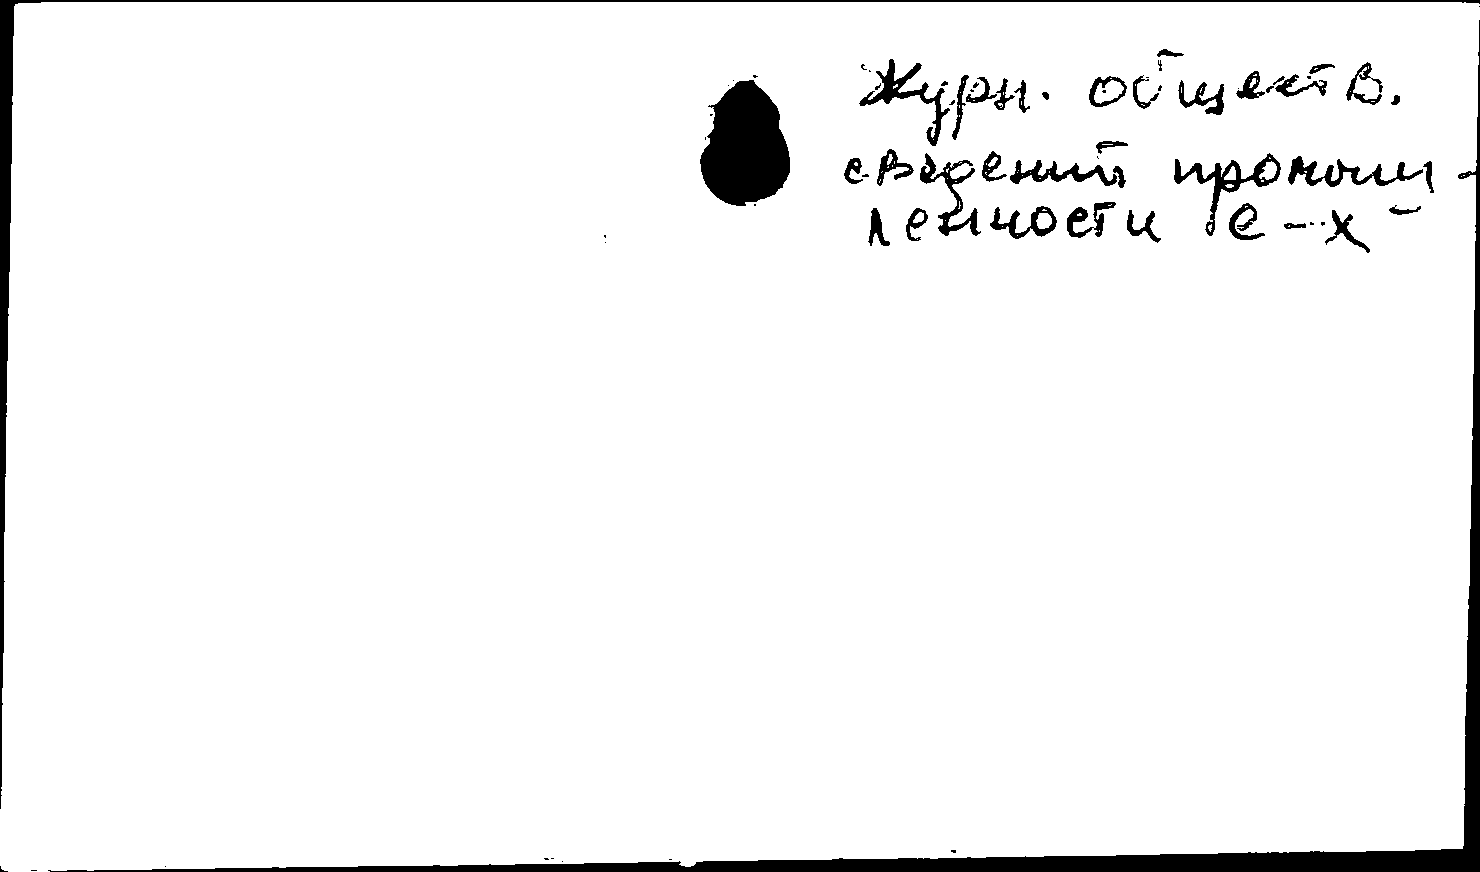 Журн. обществ.
сведений промыш-
ленности с-х